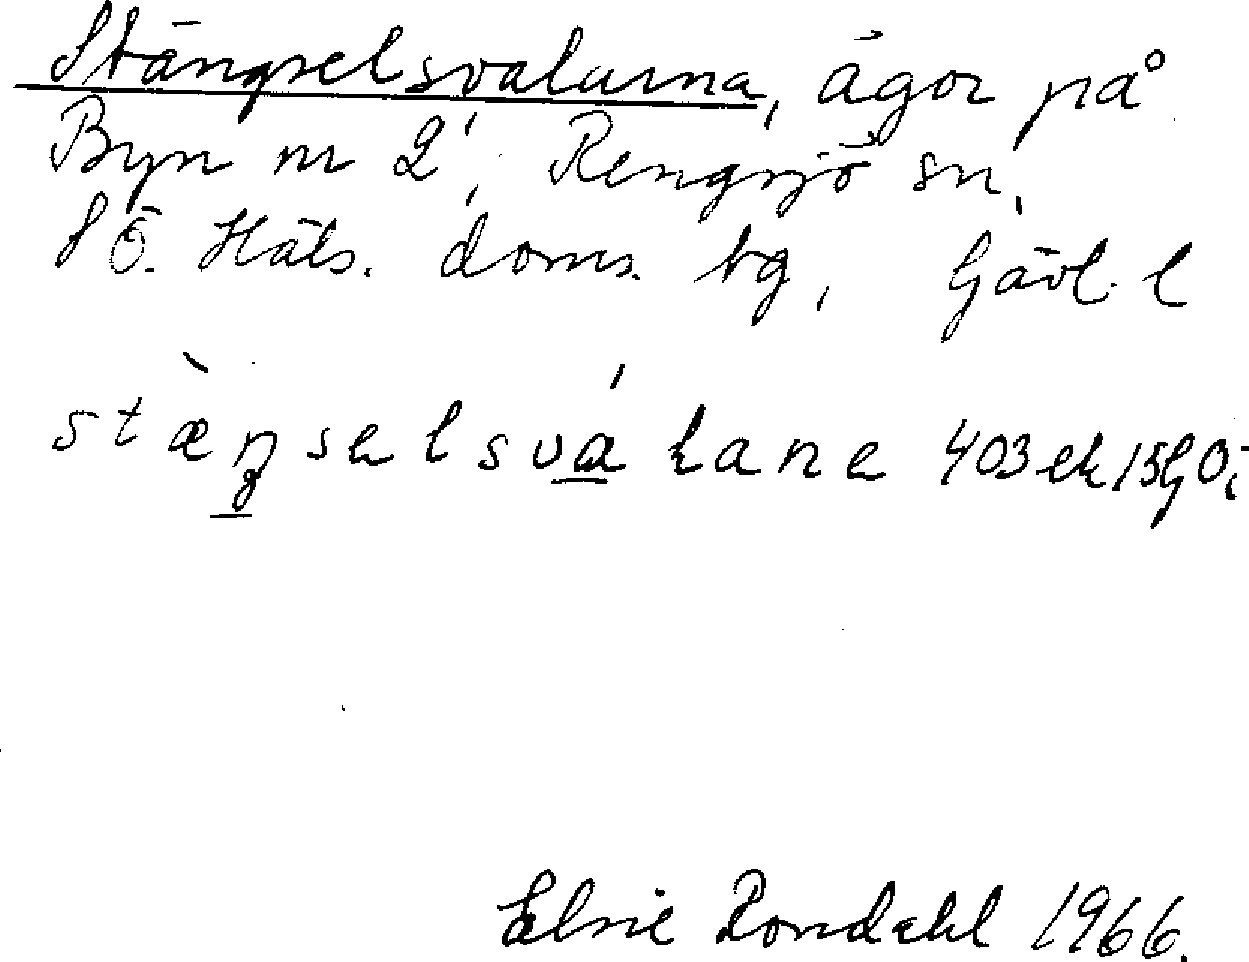 Stängselsvalarna, ägor på
Byn nr 2, Rengsjö sn,
SÖ. Häls. doms. tg, Gävl. l
stæŋselsvalana 403
Elsie Rondahl 1966.